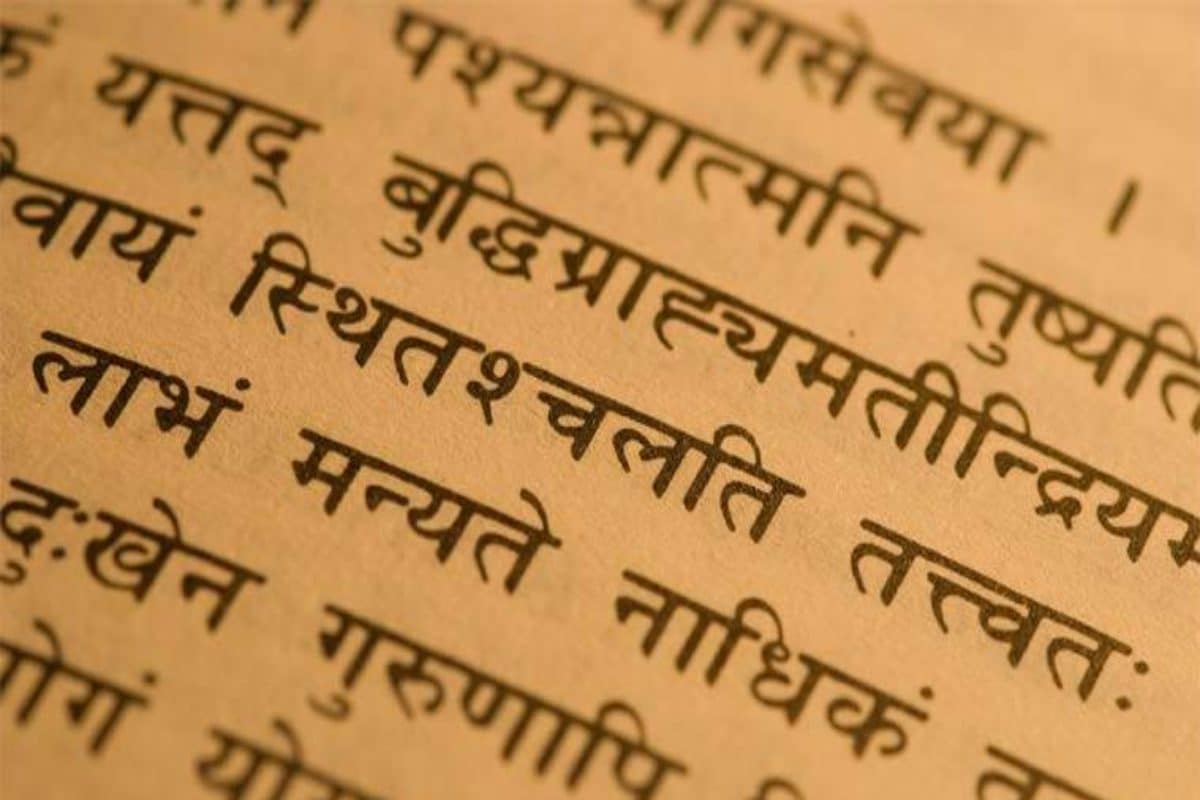 योगसेवया ।
पश्यन्नात्मनि तुष्यति
यत्तद् बुद्धिग्राह्यमतीन्द्रियम
वायं स्थितश्चलति तत्त्वतः
लाभं मन्यते नाधिकं
दुःखेन गुरुणापि
योगं